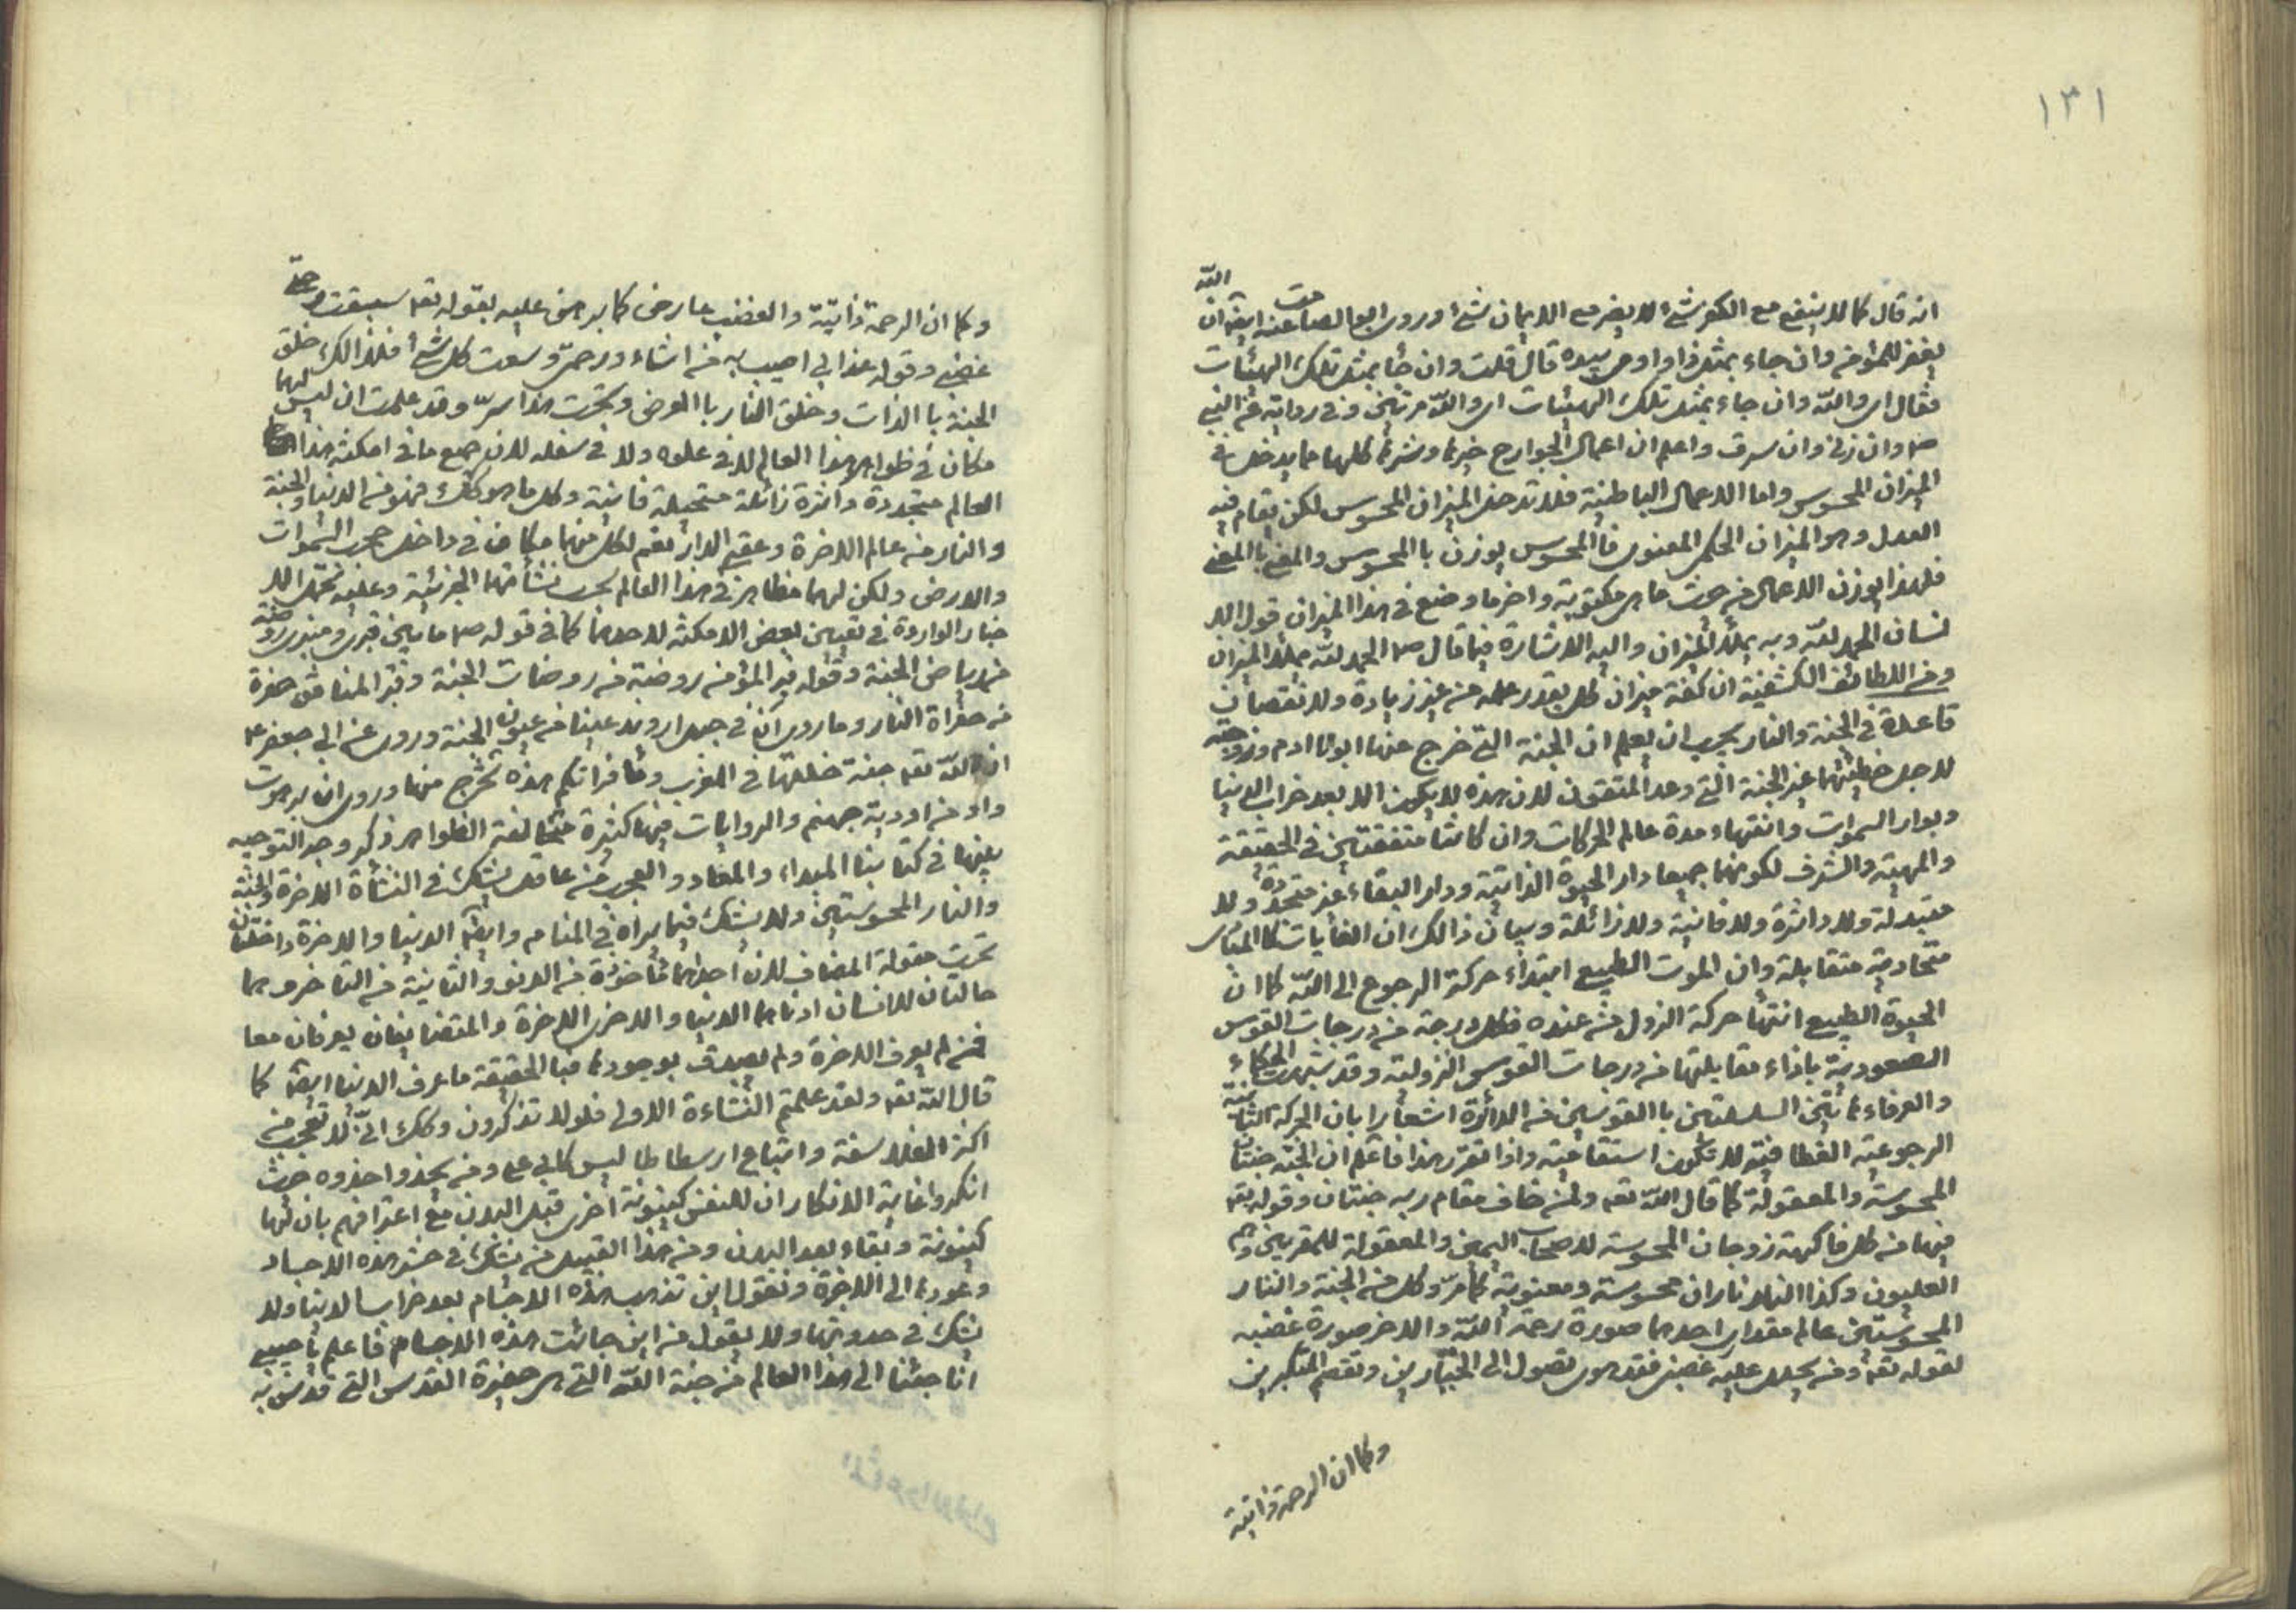 ١٣١
انه قال كما لا ينفع مع الكفر شئ لا يضر مع الايمان شئ وروى ابو الصامت عنه ايضا ان الله
يغفر للمؤمن وان جاء بمثل ذا واومى بيده قال قلت وان جاء بمثل تلك الهيئات
فقال اى والله وان جاء بمثل تلك الهيئات اى والله مرتين وفى رواية عن النبى
ص وان زنى وان سرق واعلم ان اعمال الجوارح خيرها وشرها كلها مما يدخل فى
الميزان المحسوس واما الاعمال الباطنية فلا تدخل الميزان المحسوس لكن يقام فيه
العدل وهو الميزان الحكمى المعنوى فالمحسوس يوزن باالمحسوس والمعنى باالمعنى
فلهذا يوزن الاعمال من حيث ما هى مكتوبة واخر ما وضع فى هذا الميزان قول الا
نسان الحمد لله وبه يملأ الميزان واليه الاشارة فيما قال ص الحمد لله يملأ الميزان
ومن اللطائف الكشفية ان كفة ميزان كل بقدر عمله من غير زيادة ولا نقصان
قاعدة فى الجنة والنار يجب ان يعلم ان الجنة التى خرج عنها ابونا ادم وزوجته
لاجل خطيئتهما غير الجنة التى وعد المتقون لان هذه لا يكون الا بعد خراب الدنيا
وبوار السموات وانتهاء مدة عالم الحركات وان كانتا متفقتين فى الحقيقة
والمهية والشرف لكونهما جميعا دار الحيوة الذاتية ودار البقاء غير متجددة ولا
متبدلة ولا داثرة ولا فانية ولا زائلة وبيان ذالك ان الغايات كاالمبادى
متحاذية متقابلة وان الموت الطبيعى ابتداء حركة الرجوع الى الله كما ان
الحيوة الطبيعى انتهأ حركة النزول من عنده فكل درجة من درجات القوس
الصعودية باذاء مقابلتها من درجات القوس النزولية وقد شبهت الحكماء
والعرفاء هاتين السلسلتين باالقوسين من الدائرة اشعارا بان الحركة الثانية
الرجوعية انعطافية لا تكون استقامية واذا تقرر هذا فاعلم ان الجنة جنتان
المحسوسة والمعقولة كما قال الله تعه ولمن خاف مقام ربه جنتان وقوله تعه
فيها من كل فاكهة زوجان المحسوسة لاصحاب اليمين والمعقولة للمقربين وهم
العليون وكذا النار ناران محسوسة ومعنوية كما مر وكل من الجنة والنار
المحسوستين عالم مقدارى احدهما صورة رحمة الله والاخر صورة غضبه
لقوله تعه ومن يحلل عليه غضبى فقد هوى تصول الى الجبارين وتقصم المتكبرين
وكما ان الرحمة ذاتية
وكما ان الرحمة ذاتية والغضب عارضى كما برهن عليه بقوله تعه سبقت رحمتى
غضبى وقوله عذابى اصيب به من اشاء ورحمتى وسعت كل شئ فلذالك خلق
الجنة باالذات وخلق النار باالعرض وتحت هذا سرّ وقد علمت ان ليس لهما
مكان فى ظواهر هذا العالم لا فى علوه ولا فى سفله لان جميع ما فى امكنة هذا
العالم متجددة داثرة زائلة مستحيلة فانية وكل ما هو كذلك فهو من الدنيا والجنة
والنار من عالم الاخرة وعقبى الدار نعم لكل منهما مكان فى داخل حجب السموات
والارض ولكن لهما مظاهر فى هذا العالم بحسب نشأتهما الجزئية وعليه تحمل الا
خبار الواردة فى تعيين بعض الامكنة لاحدهما كما فى قوله ص ما بين قبرى ومنبرى روضة
من رياض الجنة وقوله قبر المؤمن روضة من روضات الجنة وقبر المنافق حفرة
من حفراة النار وما روى ان فى جبل اروند عينا من عيون الجنة وروى عن ابى جعفر ع
ان الله تعه جنة خلقها فى المغرب وماء فراتكم هذه تخرج منها وروى ان برهوت
واد من اودية جهنم والروايات فيها كثيرة متخالفة الظواهر ذكر وجه التوجيه
بينها فى كتابنا المبداء والمعاد والعجب من عاقل يشك فى النشأة الاخرة والجنة
والنار المحسوستين ولا يشك فيما يراه فى المنام وايضا الدنيا والاخرة داخلتان
تحت مقولة المضاف لان احدهما مأخوذة من الدنو والثانية من التاخر وهما
حالتان للانسان ادناهما الدنيا والاخرى الاخرة والمتضايفان يعرفان معا
فمن لم يعرف الاخرة ولم يصدق بوجودها فبا الحقيقة ما عرف الدنيا ايضا كما
قال الله تعه ولقد علمتم النشاءة الاولى فلولا تذكرون وكك انى لا تعجب من
اكثر الفلاسفة واتباع ارسطاطاليس كابى على ومن يحذوا حذوه حيث
انكروا غاية الانكار ان للنفس كينونة اخرى قبل البدن مع اعترافهم بان لها
كينونة وبقاء بعد البدن ومن هذا القبيل من يشك فى حشر هذه الاجساد
وعودها الى الاخرة ونقول اين تذهب هذه الاجسام بعد خراب الدنيا ولا
يشك فى حدوثها ولا يقول من اين جائت هذه الاجسام فاعلم يا حبيبى
انا جئنا الى هذا العالم من جنة الله التى هى حضيرة القدس التى قدس به